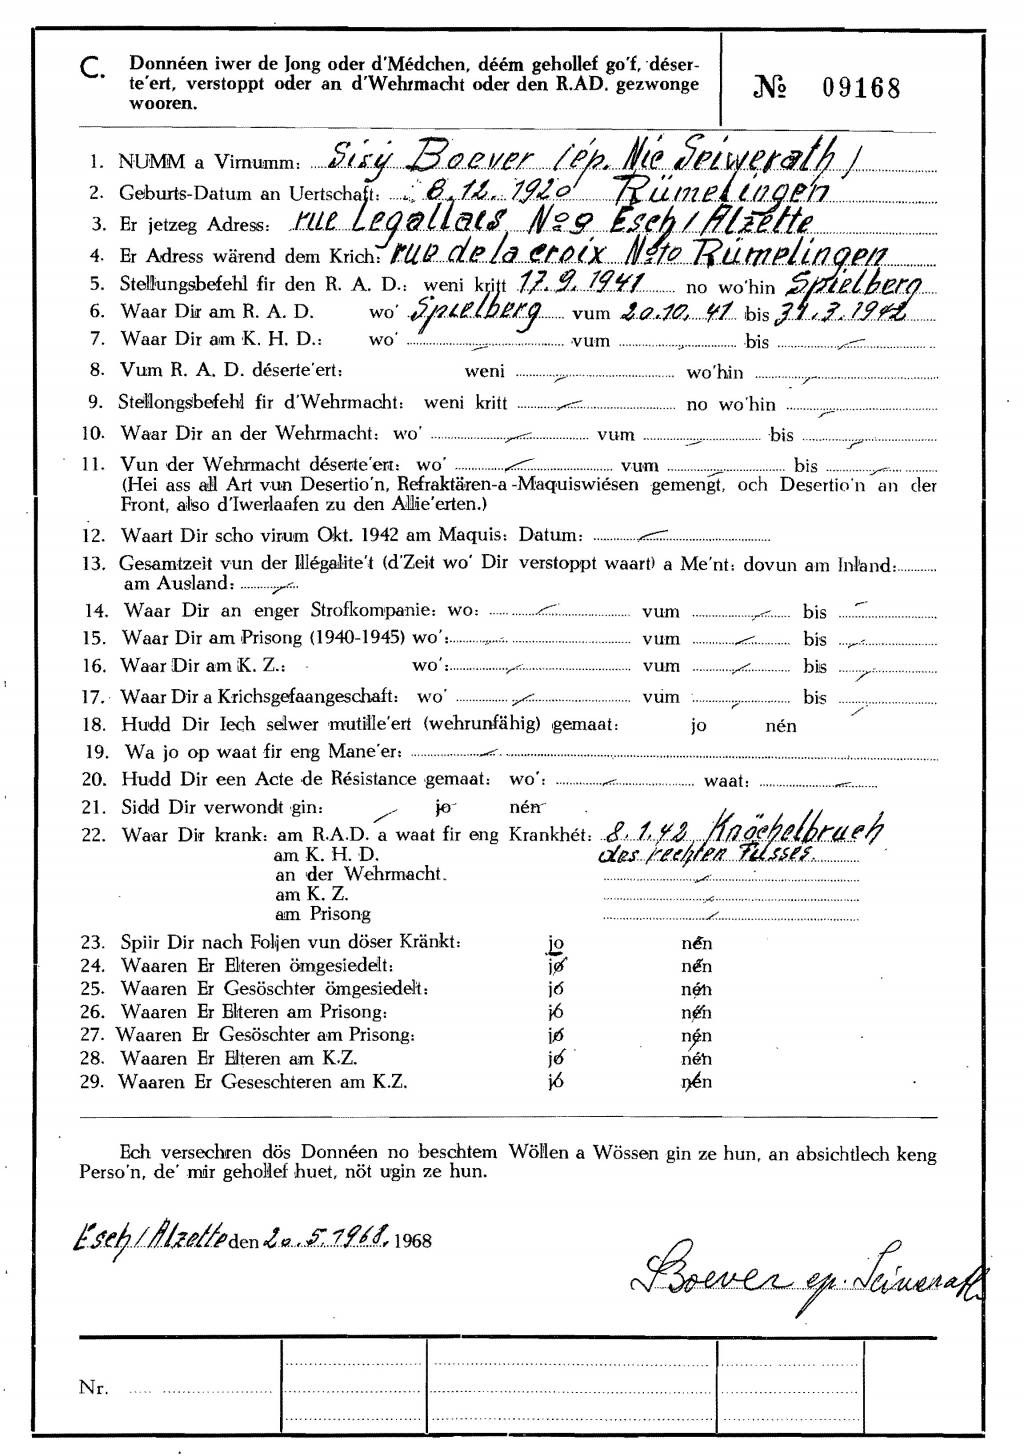 C. Donnéen iwer de Jong oder d'Médchen, déém gehollef go'f, déser-
te'ert, verstoppt oder an d'Wehrmacht oder den R.AD. gezwonge
wooren.
№ 09168
1. NUMM a Virnumm: Sisy Boever (ép. Nic Seiwerath)
2. Geburts-Datum an Uertschaft: 8.12.1920 Rümelingen
3. Er jetzeg Adress: rue Legallais, No 9 Esch/Alzette
4. Er Adress wärend dem Krich: rue de la croix No 10 Rümelingen
5. Stellungsbefehl fir den R. A. D.: weni kritt 17.9.1941 no wo'hin Spielberg
6. Waar Dir am R. A. D. wo' Spielberg vum 20.10.41 bis 31.3.1942
7. Waar Dir am K. H. D.: wo' vum bis
8. Vum R. A. D. déserte'ert: weni wo'hin
9. Stellongsbefehl fir d'Wehrmacht: weni kritt no wo'hin
10. Waar Dir an der Wehrmacht: wo' vum bis
11. Vun der Wehrmacht déserte'ert: wo' vum bis
(Hei ass all Art vun Desertio'n, Refraktären-a-Maquiswiésen gemengt, och Desertio'n an der
Front, also d'Iwerlaafen zu den Allie'erten.)
12. Waart Dir scho virum Okt. 1942 am Maquis: Datum:
13. Gesamtzeit vun der Illégalite't (d'Zeit wo' Dir verstoppt waart) a Me'nt: dovun am Inland:
am Ausland:
14. Waar Dir an enger Strofkompanie: wo: vum bis
15. Waar Dir am Prisong (1940-1945) wo': vum bis
16. Waar Dir am K. Z.: wo': vum bis
17. Waar Dir a Krichsgefaangeschaft: wo' vum bis
18. Hudd Dir Iech selwer mutille'ert (wehrunfähig) gemaat: jo nén
19. Wa jo op waat fir eng Mane'er:
20. Hudd Dir een Acte de Résistance gemaat: wo': waat:
21. Sidd Dir verwondt gin: jo nén
22. Waar Dir krank: am R.A.D. a waat fir eng Krankhét: 8.1.42 Knöchelbruch
am K. H. D. des rechten Fusses.
an der Wehrmacht.
am K. Z.
am Prisong
23. Spiir Dir nach Foljen vun döser Kränkt: jo nén
24. Waaren Er Elteren ömgesiedelt: jo nén
25. Waaren Er Gesöschter ömgesiedelt: jo nén
26. Waaren Er Elteren am Prisong: jo nén
27. Waaren Er Gesöschter am Prisong: jo nén
28. Waaren Er Elteren am K.Z. jo nén
29. Waaren Er Geseschteren am K.Z. jo nén
Ech versechren dös Donnéen no beschtem Wöllen a Wössen gin ze hun, an absichtlech keng
Perso'n, de' mir gehollef huet, nöt ugin ze hun.
Esch/Alzette den 20.5.1968. 1968
Boever ep. Seiwerath
Nr.